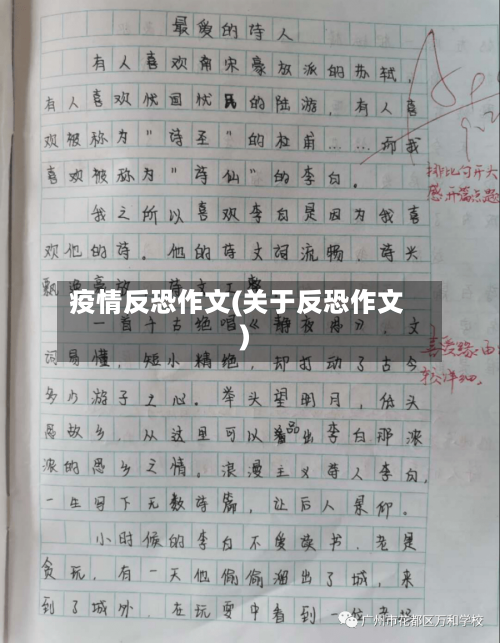 最爱的诗人
有人喜欢南宋豪放派的苏轼,
有人喜欢忧国忧民的陆游,有人喜
欢被称为"诗圣"的杜甫……而我
喜欢被称为"诗仙"的李白。
排比句开头
开篇点题
我之所以喜欢李白是因为我喜
欢他的诗。他的诗文词流畅,诗兴
疫情反恐作文(关于反恐作文
)
一首千古绝唱《静夜思》,文
词易懂,短小精悍,却打动了古今
多少游子之心。举头望明月,低头
思故乡,从这里可以品出李白那浓
浓的思乡之情。浪漫主义诗人李白,
一生写下无数诗篇,让后人景仰。
小时候的李白不爱读书,老是
贪玩,有一天他偷偷溜出了城,来
到了城外,在玩耍中看到一位老
广州市花都区万和学校